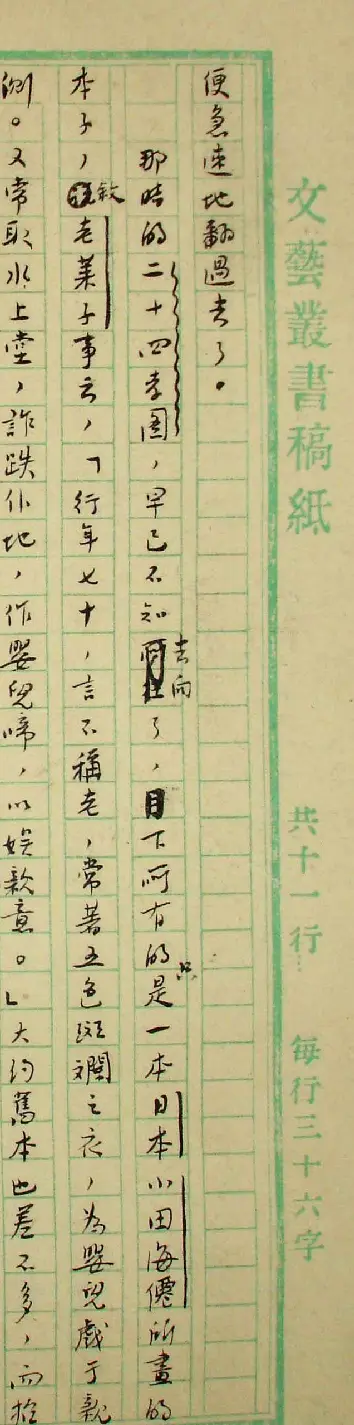 文藝叢書稿紙 共十一行 每行三十六字
便急速地翻過去了。
那時的二十四孝圖,早已不知去向了,目下所有的只是一本日本小田海僊所畫的
本子,敘老萊子事云,「行年七十,言不稱老,常著五色斑斕之衣,為嬰兒戲于親
側。又常取水上堂,詐跌仆地,作嬰兒啼,以娛親意。」大約舊本也差不多,而招